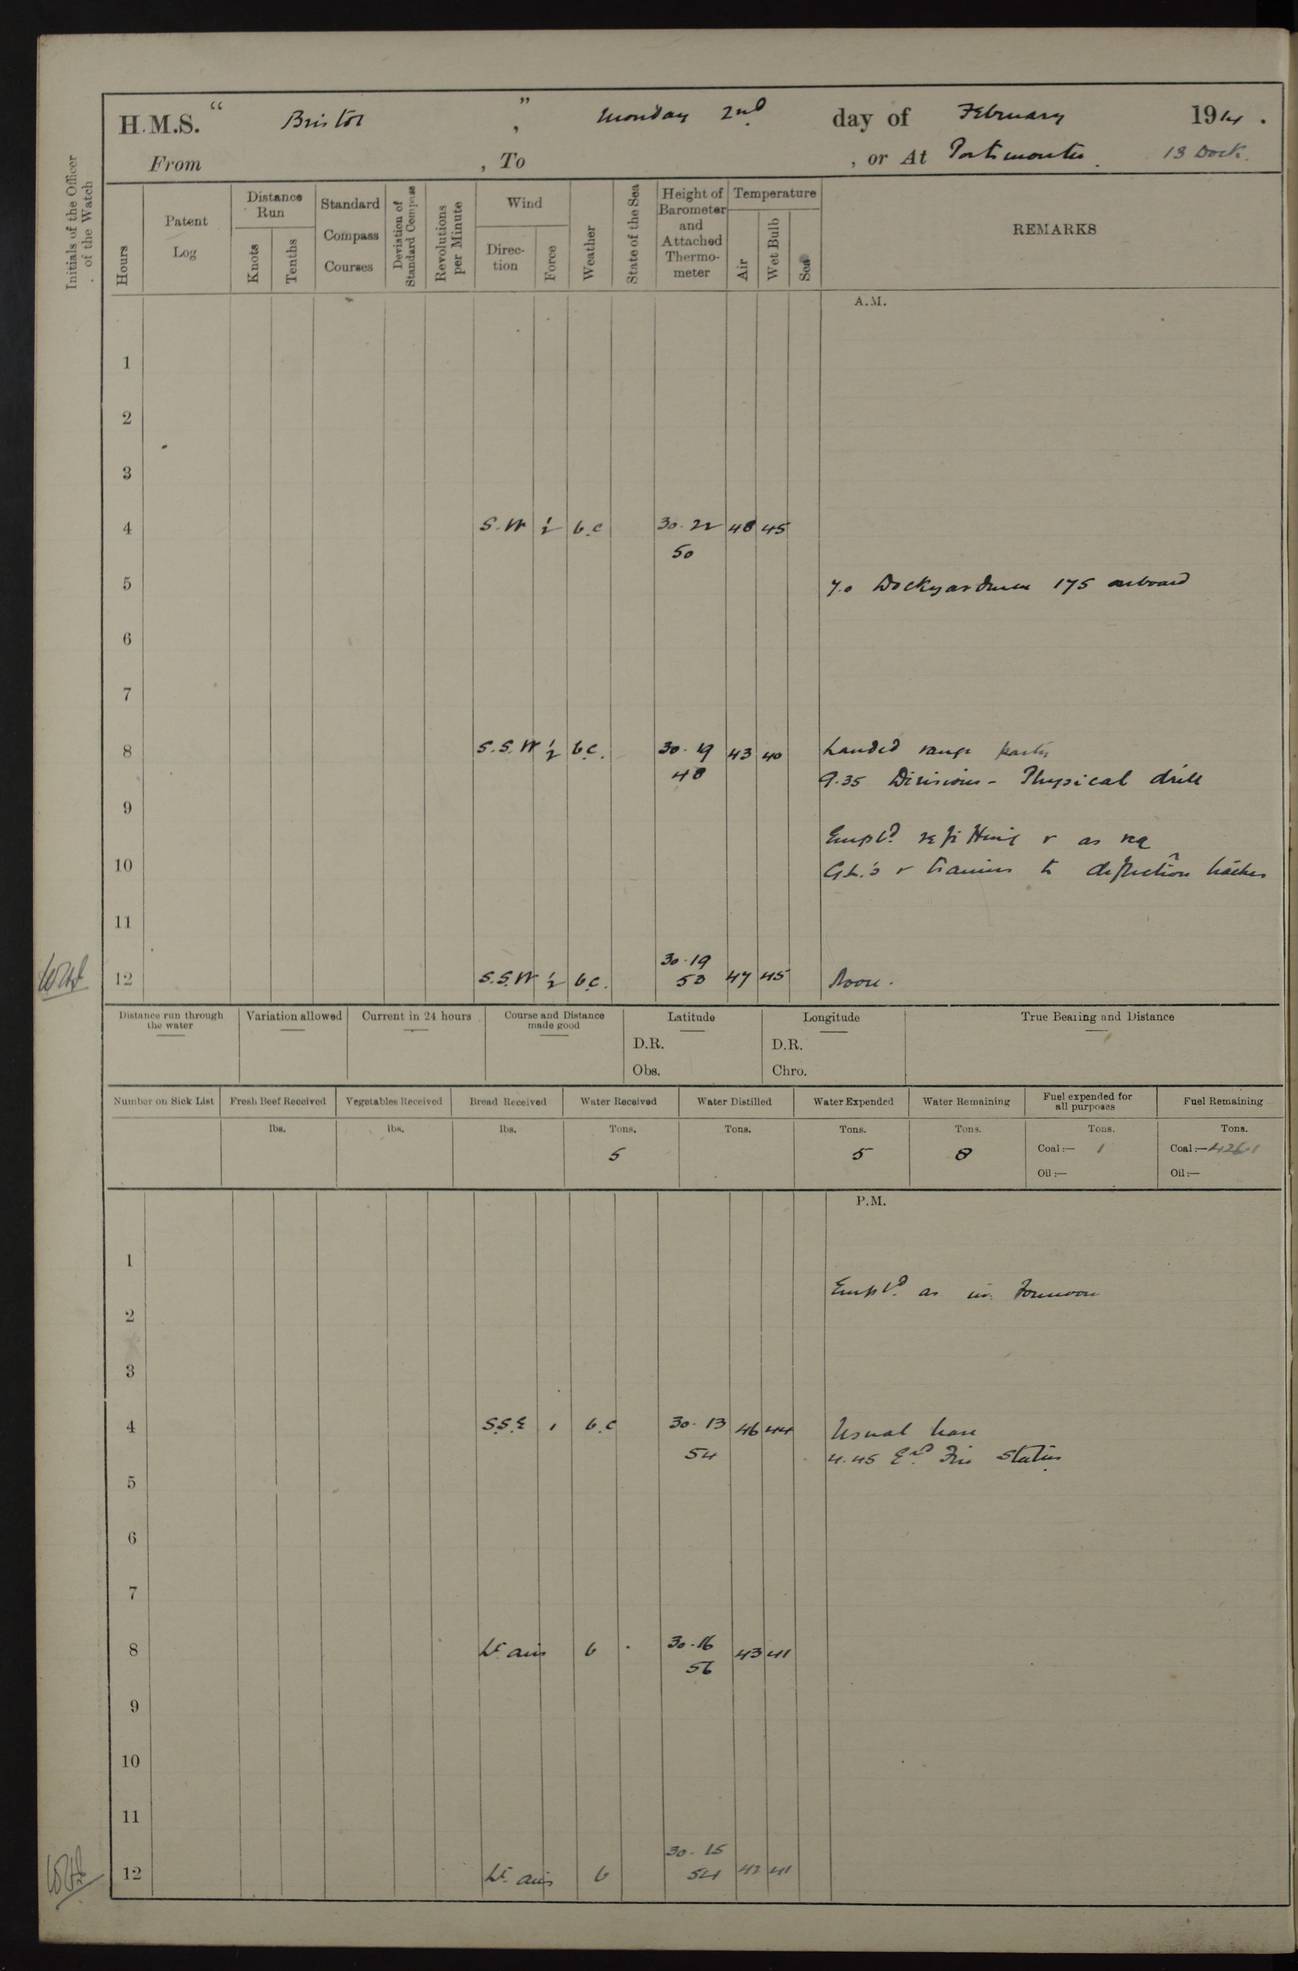 H.M.S. " Bristol ", Monday 2nd day of February 1914.
From , To , or At Portsmouth. 13 Dock.
Initials of the Officer of the Watch
Hours
Patent Log
Distance Run
Knots
Tenths
Standard Compass Courses
Deviation of Standard Compass
Revolutions per Minute
Wind
Direction
Force
Weather
State of the Sea
Height of Barometer and Attached Thermometer
Temperature
Air
Wet Bulb
Sea
REMARKS
A.M.
1
2
3
4 S.W ½ b.c 30.22 48 45
50
5 7.0 Dockyardmen 175 onboard
6
7
8 S.S.W ½ b.c. 30.19 43 40 Landed range party
48 9.35 Divisions - Physical drill
9
Empld. refitting & as req
10 G.L.'s & trainers to deflection teacher
11
30.19
12 S.S.W ½ b.c. 50 47 45 Noon.
Distance run through the water
Variation allowed
Current in 24 hours
Course and Distance made good
Latitude
D.R.
Obs.
Longitude
D.R.
Chro.
True Bearing and Distance
Number on Sick List
Fresh Beef Received
lbs.
Vegetables Received
lbs.
Bread Received
lbs.
Water Received
Tons.
5
Water Distilled
Tons.
Water Expended
Tons.
5
Water Remaining
Tons.
8
Fuel expended for all purposes
Tons.
Coal:— 1
Oil:—
Fuel Remaining
Tons.
Coal:— 426.1
Oil:—
P.M.
1
Empld. as in Forenoon
2
3
4 S.S.E 1 b.c 30.13 46 44 Usual leave
54 4.45 Ed. Fire Stations
5
6
7
8 Lt airs b 30.16 43 41
56
9
10
11
30.15
12 Lt. airs b 54 43 41